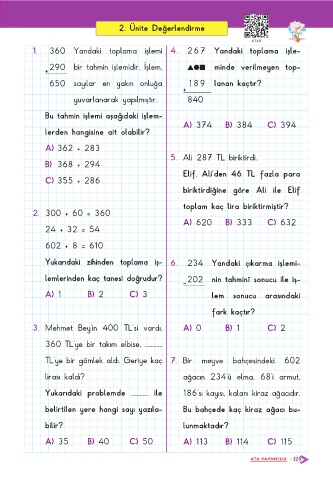 2. Ünite Değerlendirme
1. 360 Yandaki toplama işlemi
+ 290 bir tahmin işlemidir. İşlem,
650 sayılar en yakın onluğa
yuvarlanarak yapılmıştır.
Bu tahmin işlemi aşağıdaki işlem-
lerden hangisine ait olabilir?
A) 362 + 283
B) 368 + 294
C) 355 + 286
2. 300 + 60 = 360
24 + 32 = 54
602 + 8 = 610
Yukarıdaki zihinden toplama iş-
lemlerinden kaç tanesi doğrudur?
A) 1 B) 2 C) 3
3. Mehmet Bey'in 400 TL'si vardı.
360 TL'ye bir takım elbise, ...........
TL'ye bir gömlek aldı. Geriye kaç
lirası kaldı?
Yukarıdaki problemde ........... ile
belirtilen yere hangi sayı yazıla-
bilir?
A) 35 B) 40 C) 50
4. 267 Yandaki toplama işle-
▲●■ minde verilmeyen top-
+ 189 lanan kaçtır?
840
A) 374 B) 384 C) 394
5. Ali 287 TL biriktirdi.
Elif, Ali'den 46 TL fazla para
biriktirdiğine göre Ali ile Elif
toplam kaç lira biriktirmiştir?
A) 620 B) 333 C) 632
6. 234 Yandaki çıkarma işlemi-
- 202 nin tahminî sonucu ile iş-
lem sonucu arasındaki
fark kaçtır?
A) 0 B) 1 C) 2
7. Bir meyve bahçesindeki 602
ağacın 234'ü elma, 68'i armut,
186'sı kayısı, kalanı kiraz ağacıdır.
Bu bahçede kaç kiraz ağacı bu-
lunmaktadır?
A) 113 B) 114 C) 115
ATA YAYINCILIK